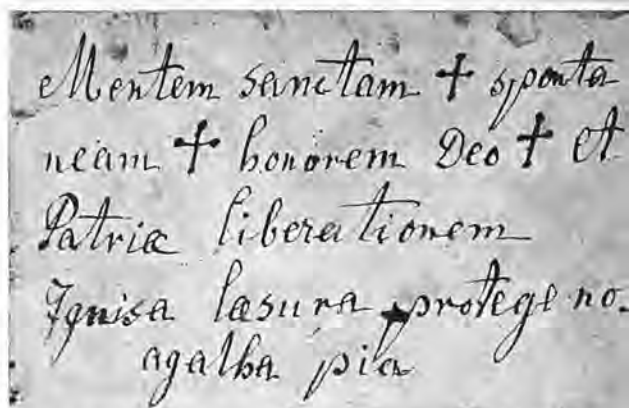 Mentem sanctam + sponta
neam + honorem Deo + et
Patriæ liberationem
Ignisa læsura protege no.
agatha pia